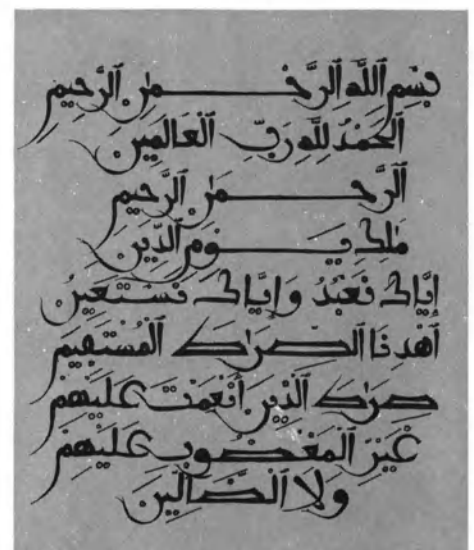 بِسْمِ ٱللَّهِ ٱلرَّحْمَٰنِ ٱلرَّحِيمِ
ٱلْحَمْدُ لِلَّهِ رَبِّ ٱلْعَالَمِينَ
ٱلرَّحْمَٰنِ ٱلرَّحِيمِ
مَٰلِكِ يَوْمِ ٱلدِّينِ
إِيَّاكَ نَعْبُدُ وَإِيَّاكَ نَسْتَعِينُ
ٱهْدِنَا ٱلصِّرَٰطَ ٱلْمُسْتَقِيمَ
صِرَٰطَ ٱلَّذِينَ أَنْعَمْتَ عَلَيْهِمْ
غَيْرِ ٱلْمَغْضُوبِ عَلَيْهِمْ
وَلَا ٱلضَّالِّينَ